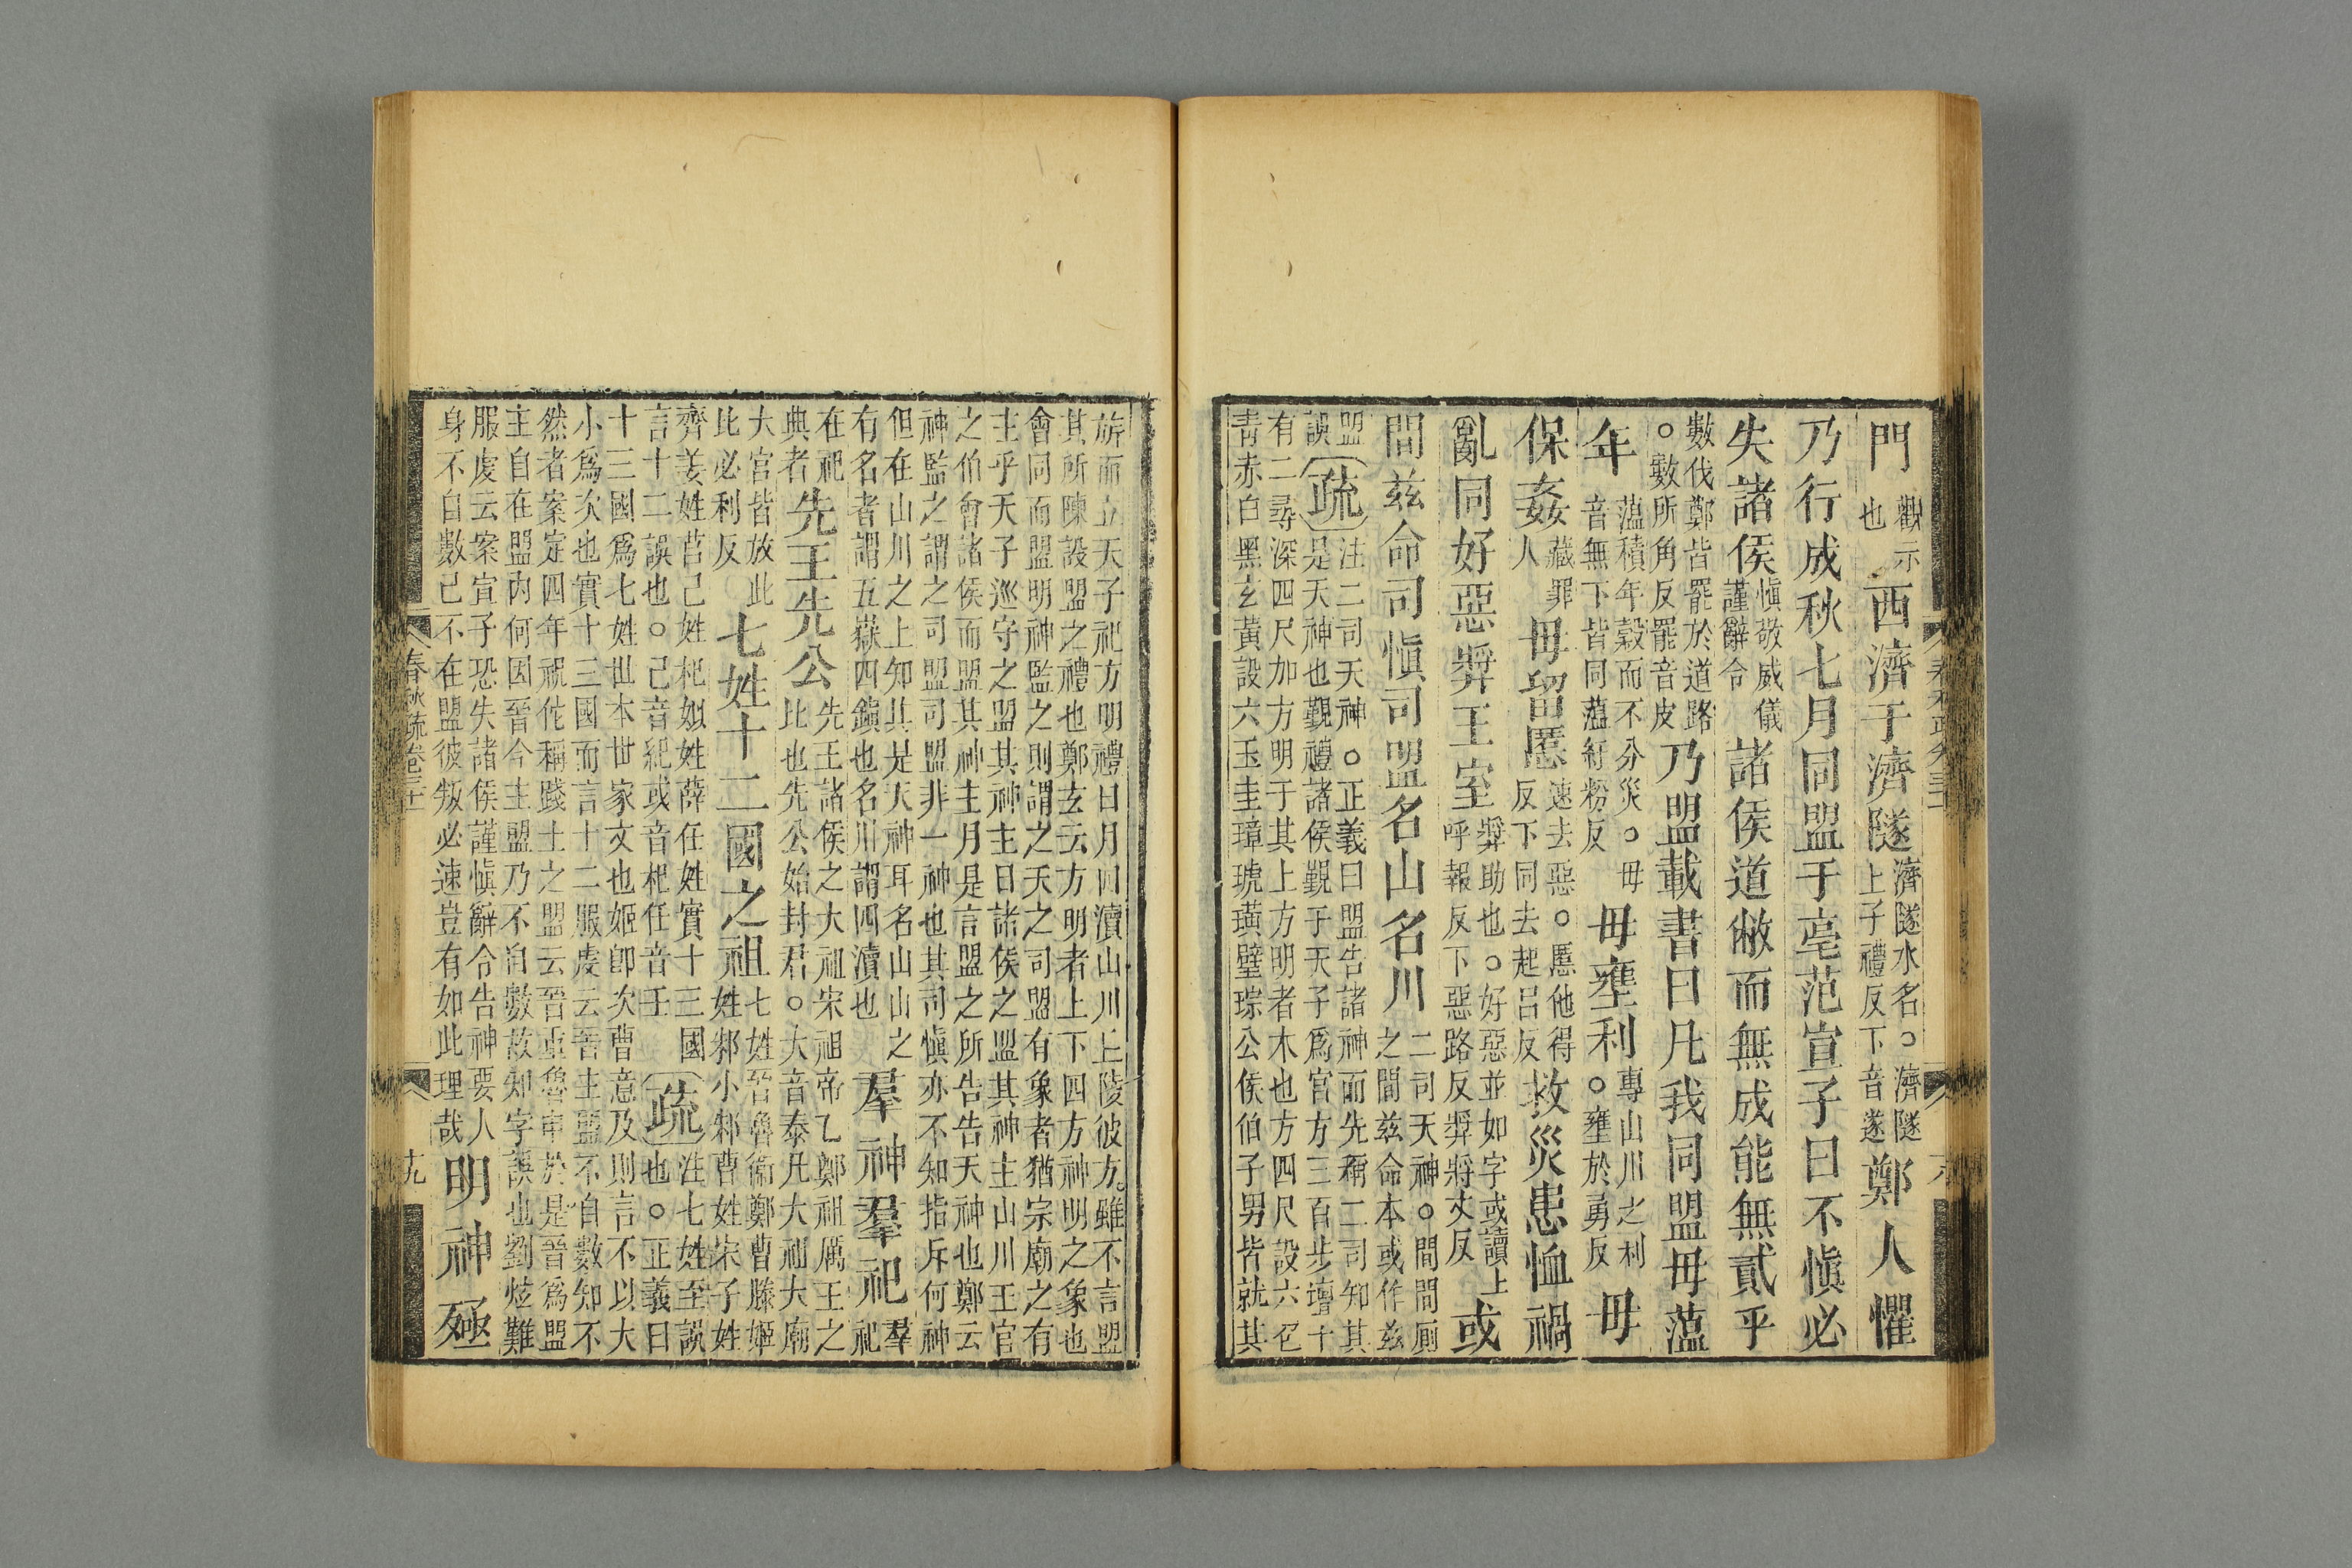 門觀示也西濟于濟隧濟隧水名○濟隧上子禮反下音遂鄭人懼
乃行成秋七月同盟于亳范宣子曰不慎必
失諸侯慎敬威儀謹辭令諸侯道敝而無成能無貳乎
數伐鄭皆罷於道路○數所角反罷音皮乃盟載書曰凡我同盟毋薀
年薀積年穀而不分災○毋音無下皆同薀紆粉反毋壅利專山川之利○壅於勇反毋
保姦藏罪人毋留慝速去惡○慝他得反下同去起呂反救災患恤禍
亂同好惡獎王室獎助也○好惡並如字或讀上呼報反下惡路反獎將丈反或
間兹命司慎司盟名山名川二司天神○間間廁之間兹命本或作兹
盟誤疏注二司天神○正義曰盟告諸神而先稱二司知其是天神也覲禮諸侯覲于天子爲宮方三百步壇十
有二尋深四尺加方明于其上方明者木也方四尺設六色
青赤白黑玄黃設六玉圭璋琥璜璧琮公侯伯子男皆就其
旂而立天子祀方明禮日月四瀆山川丘陵彼方雖不言盟
其所陳設盟之禮也鄭玄云方明者上下四方神明之象也
會同而盟明神監之則謂之天之司盟有象者猶宗廟之有
主乎天子巡守之盟其神主日諸侯之盟其神主山川王官
之伯會諸侯而盟其神主月是言盟之所告告天神也鄭云
神監之謂之司盟司盟非一神也其司慎亦不知指斥何神
但在山川之上知其是天神耳名山山之有名者謂五嶽四鎮也名川謂四瀆也羣神羣祀羣祀
在祀典者先王先公先王諸侯之大祖宋祖帝乙鄭祖厲王之比也先公始封君○大音泰凡大祖大廟
大宮皆放此比必利反七姓十二國之祖七姓晉魯衞鄭曹滕姬姓邾小邾曹姓宋子姓
齊姜姓莒己姓杞姒姓薛任姓實十三國言十二誤也○己音紀或音杞任音壬疏注七姓至誤也○正義曰
十三國爲七姓世本世家文也姬即次曹意及則言不以大
小爲次也實十三國而言十二服虔云晉主盟不自數知不
然者案定四年祝佗稱踐土之盟云晉重魯申於是晉爲盟
主自在盟内何因晉今主盟乃不自數故知字誤也劉炫難
服虔云案宣子恐失諸侯謹慎辭令告神要人身不自數己不在盟彼叛必速豈有如此理哉明神殛
春秋疏卷三十一
十九